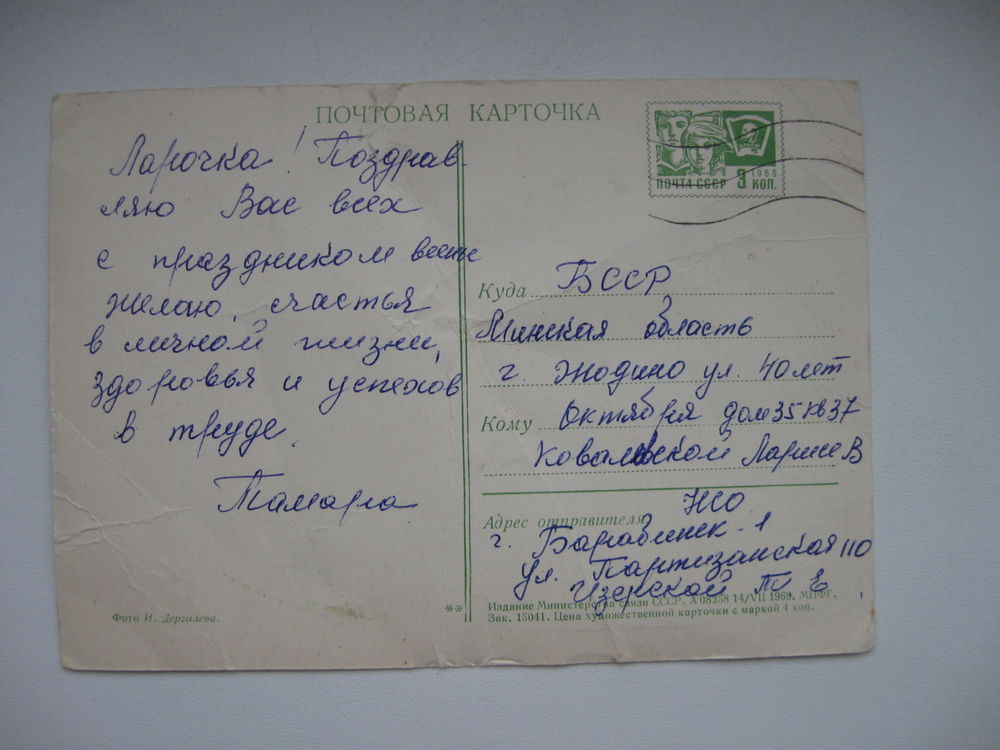 ПОЧТОВАЯ КАРТОЧКА
ПОЧТА СССР 3 КОП. 1966
Ларочка! Поздрав-
ляю Вас всех
с праздником весны
желаю, счастья
в личной жизни,
здоровья и успехов
в труде.
Тамара
Фото И. Дергилева.
**
Куда БССР
Минская область
г. Жодино ул. 40 лет
Кому Октября дом 35 кв 37
Ковалевской Ларисе В
Адрес отправителя НСО
г. Барабинск-1
ул. Партизанская 110
Изерской Т Е
Издание Министерства связи СССР. А 08258 14/VII 1969. МПФГ.
Зак. 15041. Цена художественной карточки с маркой 4 коп.